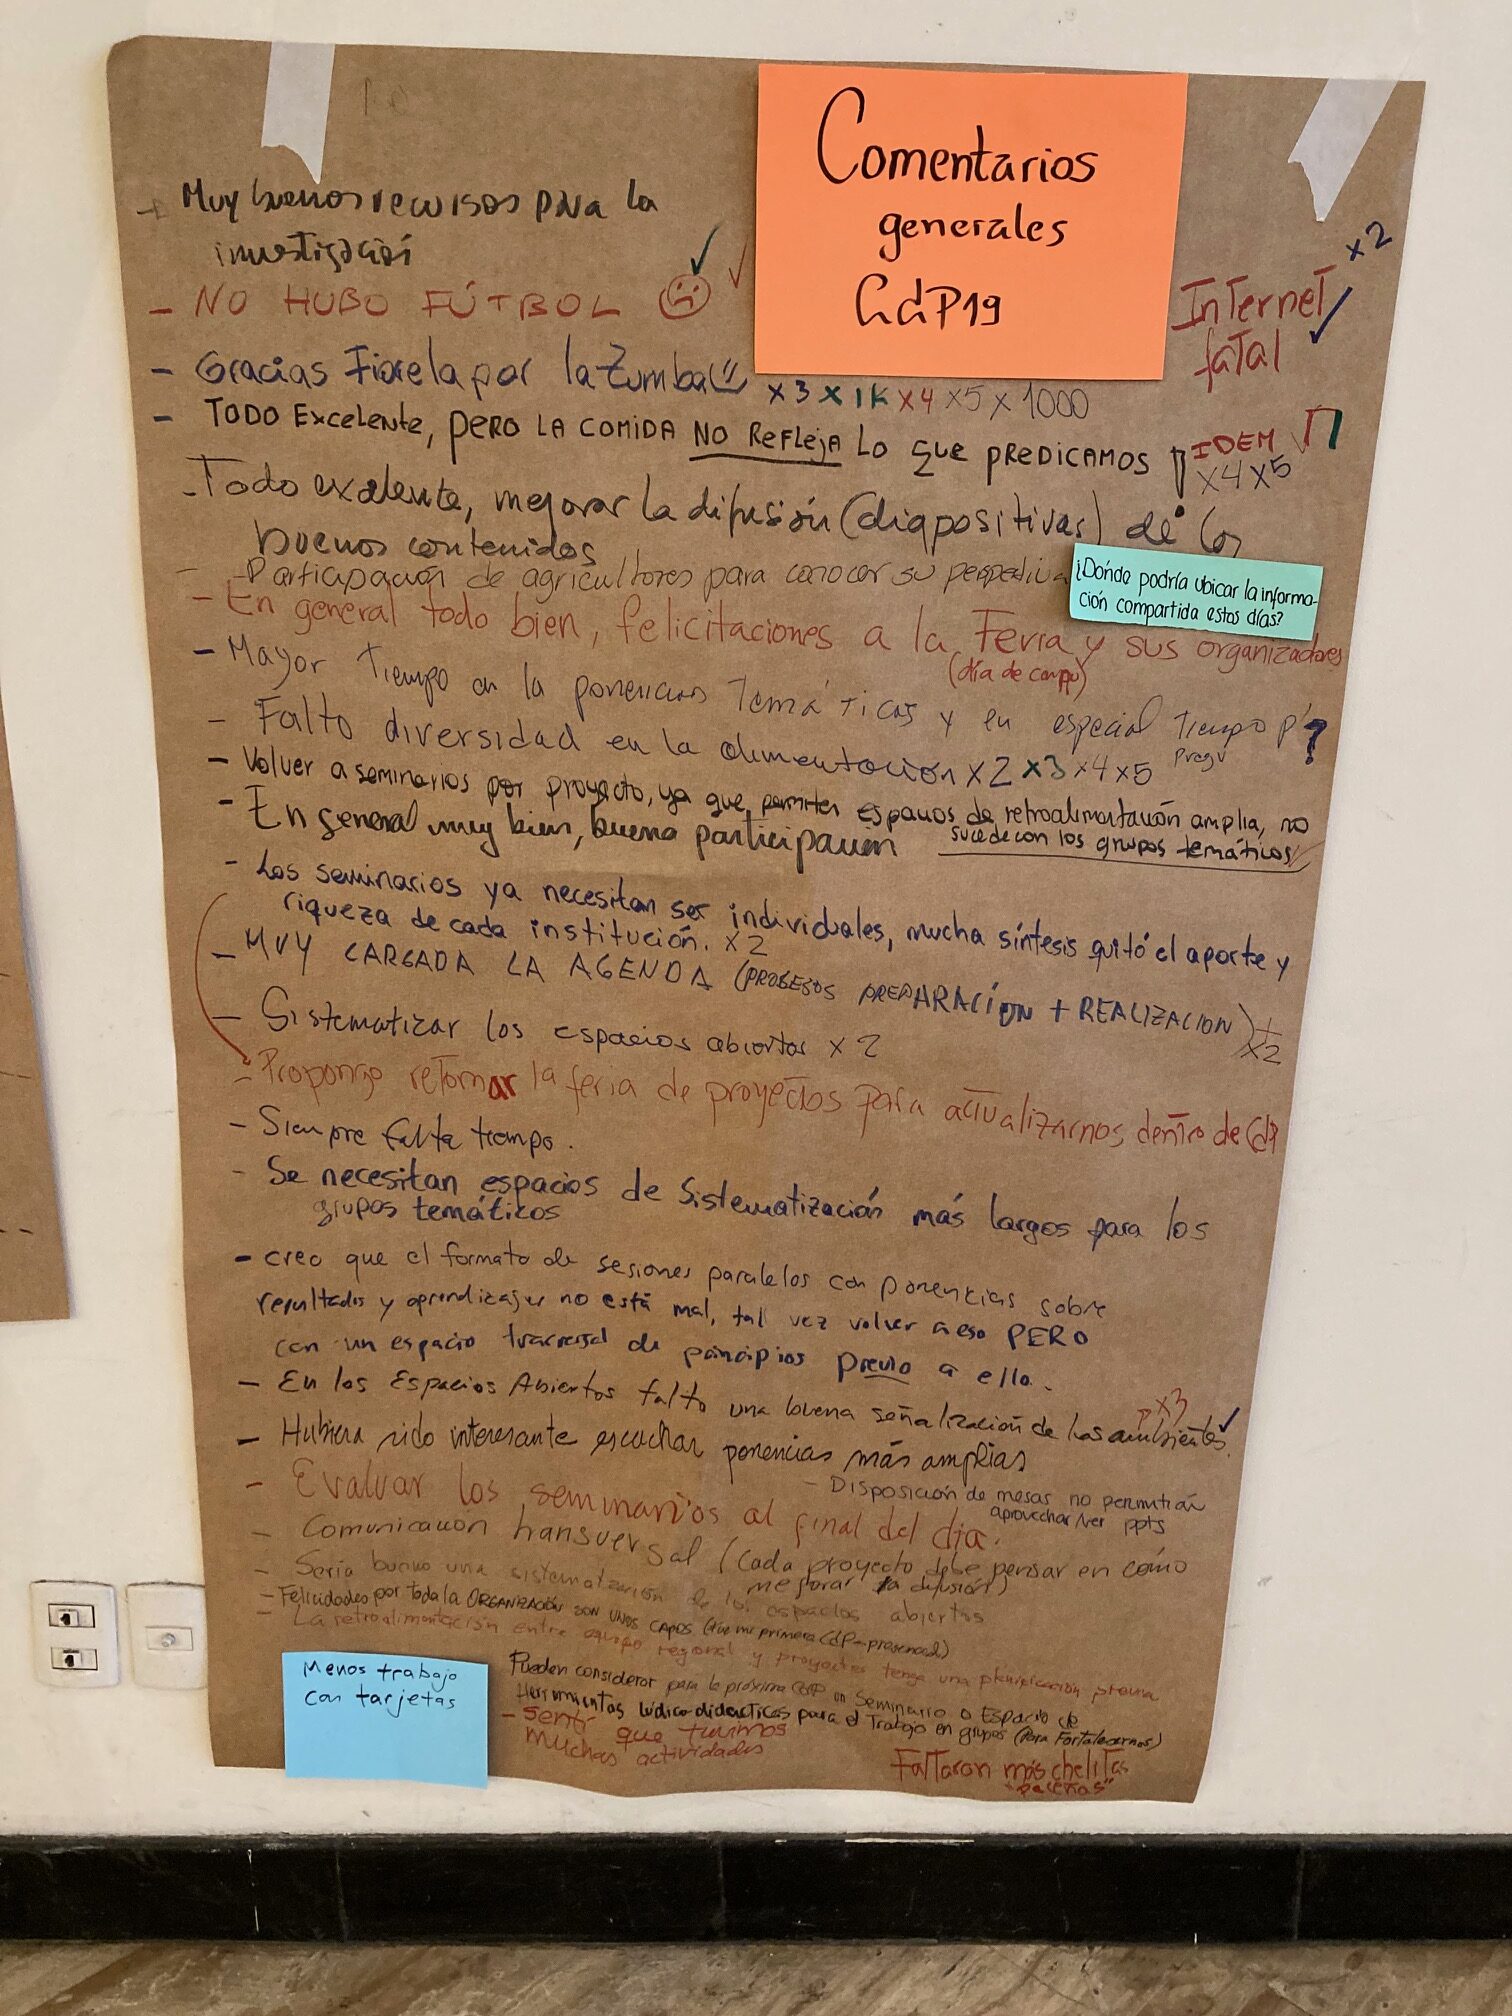 Comentarios
generales
CdP19
+ Muy buenos recursos para la
investigación
- NO HUBO FÚTBOL
Internet x2
fatal
- Gracias Fiorela por la Zumba x3 x1K x4 x5 x1000
- TODO Excelente, pero LA COMIDA NO Refleja LO QUE PREDICAMOS IDEM x4 x5
- Todo exelente, mejorar la difusión (diapositivas) de los
buenos contenidos
- Participación de agricultores para conocer su perspectiva
¿Dónde podría ubicar la informa-
ción compartida estos días?
- En general todo bien, felicitaciones a la Feria y sus organizadores
(día de campo)
- Mayor Tiempo en la ponencias Temáticas y en especial Tiempo p'
pregu ?
- Falto diversidad en la alimentación x2 x3 x4 x5
- Volver a seminarios por proyecto, ya que permiten espacios de retroalimentación amplia, no
sucede con los grupos temáticos
- En general muy bien, buena participación
- Los seminarios ya necesitan ser individuales, mucha síntesis quitó el aporte y
riqueza de cada institución. x2
- MUY CARGADA LA AGENDA (PROCESOS PREPARACIÓN + REALIZACION) +
x2
- Sistematizar los espacios abiertos x2
- Propongo retomar la feria de proyectos para actualizarnos dentro de CdP
- Siempre falta tiempo.
- Se necesitan espacios de Sistematización más largos para los
grupos temáticos
- creo que el formato de sesiones paralelas con ponencias sobre
resultados y aprendizajes no está mal, tall vez volver a eso PERO
con un espacio trasversal de principios previo a ello.
- En los Espacios Abiertos falto una buena señalización de los ambientes. x3
- Hubiera sido interesante escuchar ponencias más amplias
- Disposición de mesas no permitían
aprovechar/ver ppts
- Evaluar los seminarios al final del día.
- Comunicación transversal (Cada proyecto debe pensar en cómo
mejorar la difusión)
- Sería bueno una sistematización de los espacios abiertos
- Felicidades por toda la ORGANIZACIÓN SON UNOS CAPOS (Fue mi primera CdP-presencial)
- La retroalimentación entre equipo regional y proyectos tenga una planificación previa
Pueden considerar para la próxima CdP un Seminario o Espacio de
Herramientas lúdico-didacticas para el Trabajo en grupos (Para Fortalecernos)
- Sentí que tuvimos
muchas actividades
Menos trabajo
con tarjetas
Faltaron más chelitas
"paceñas"